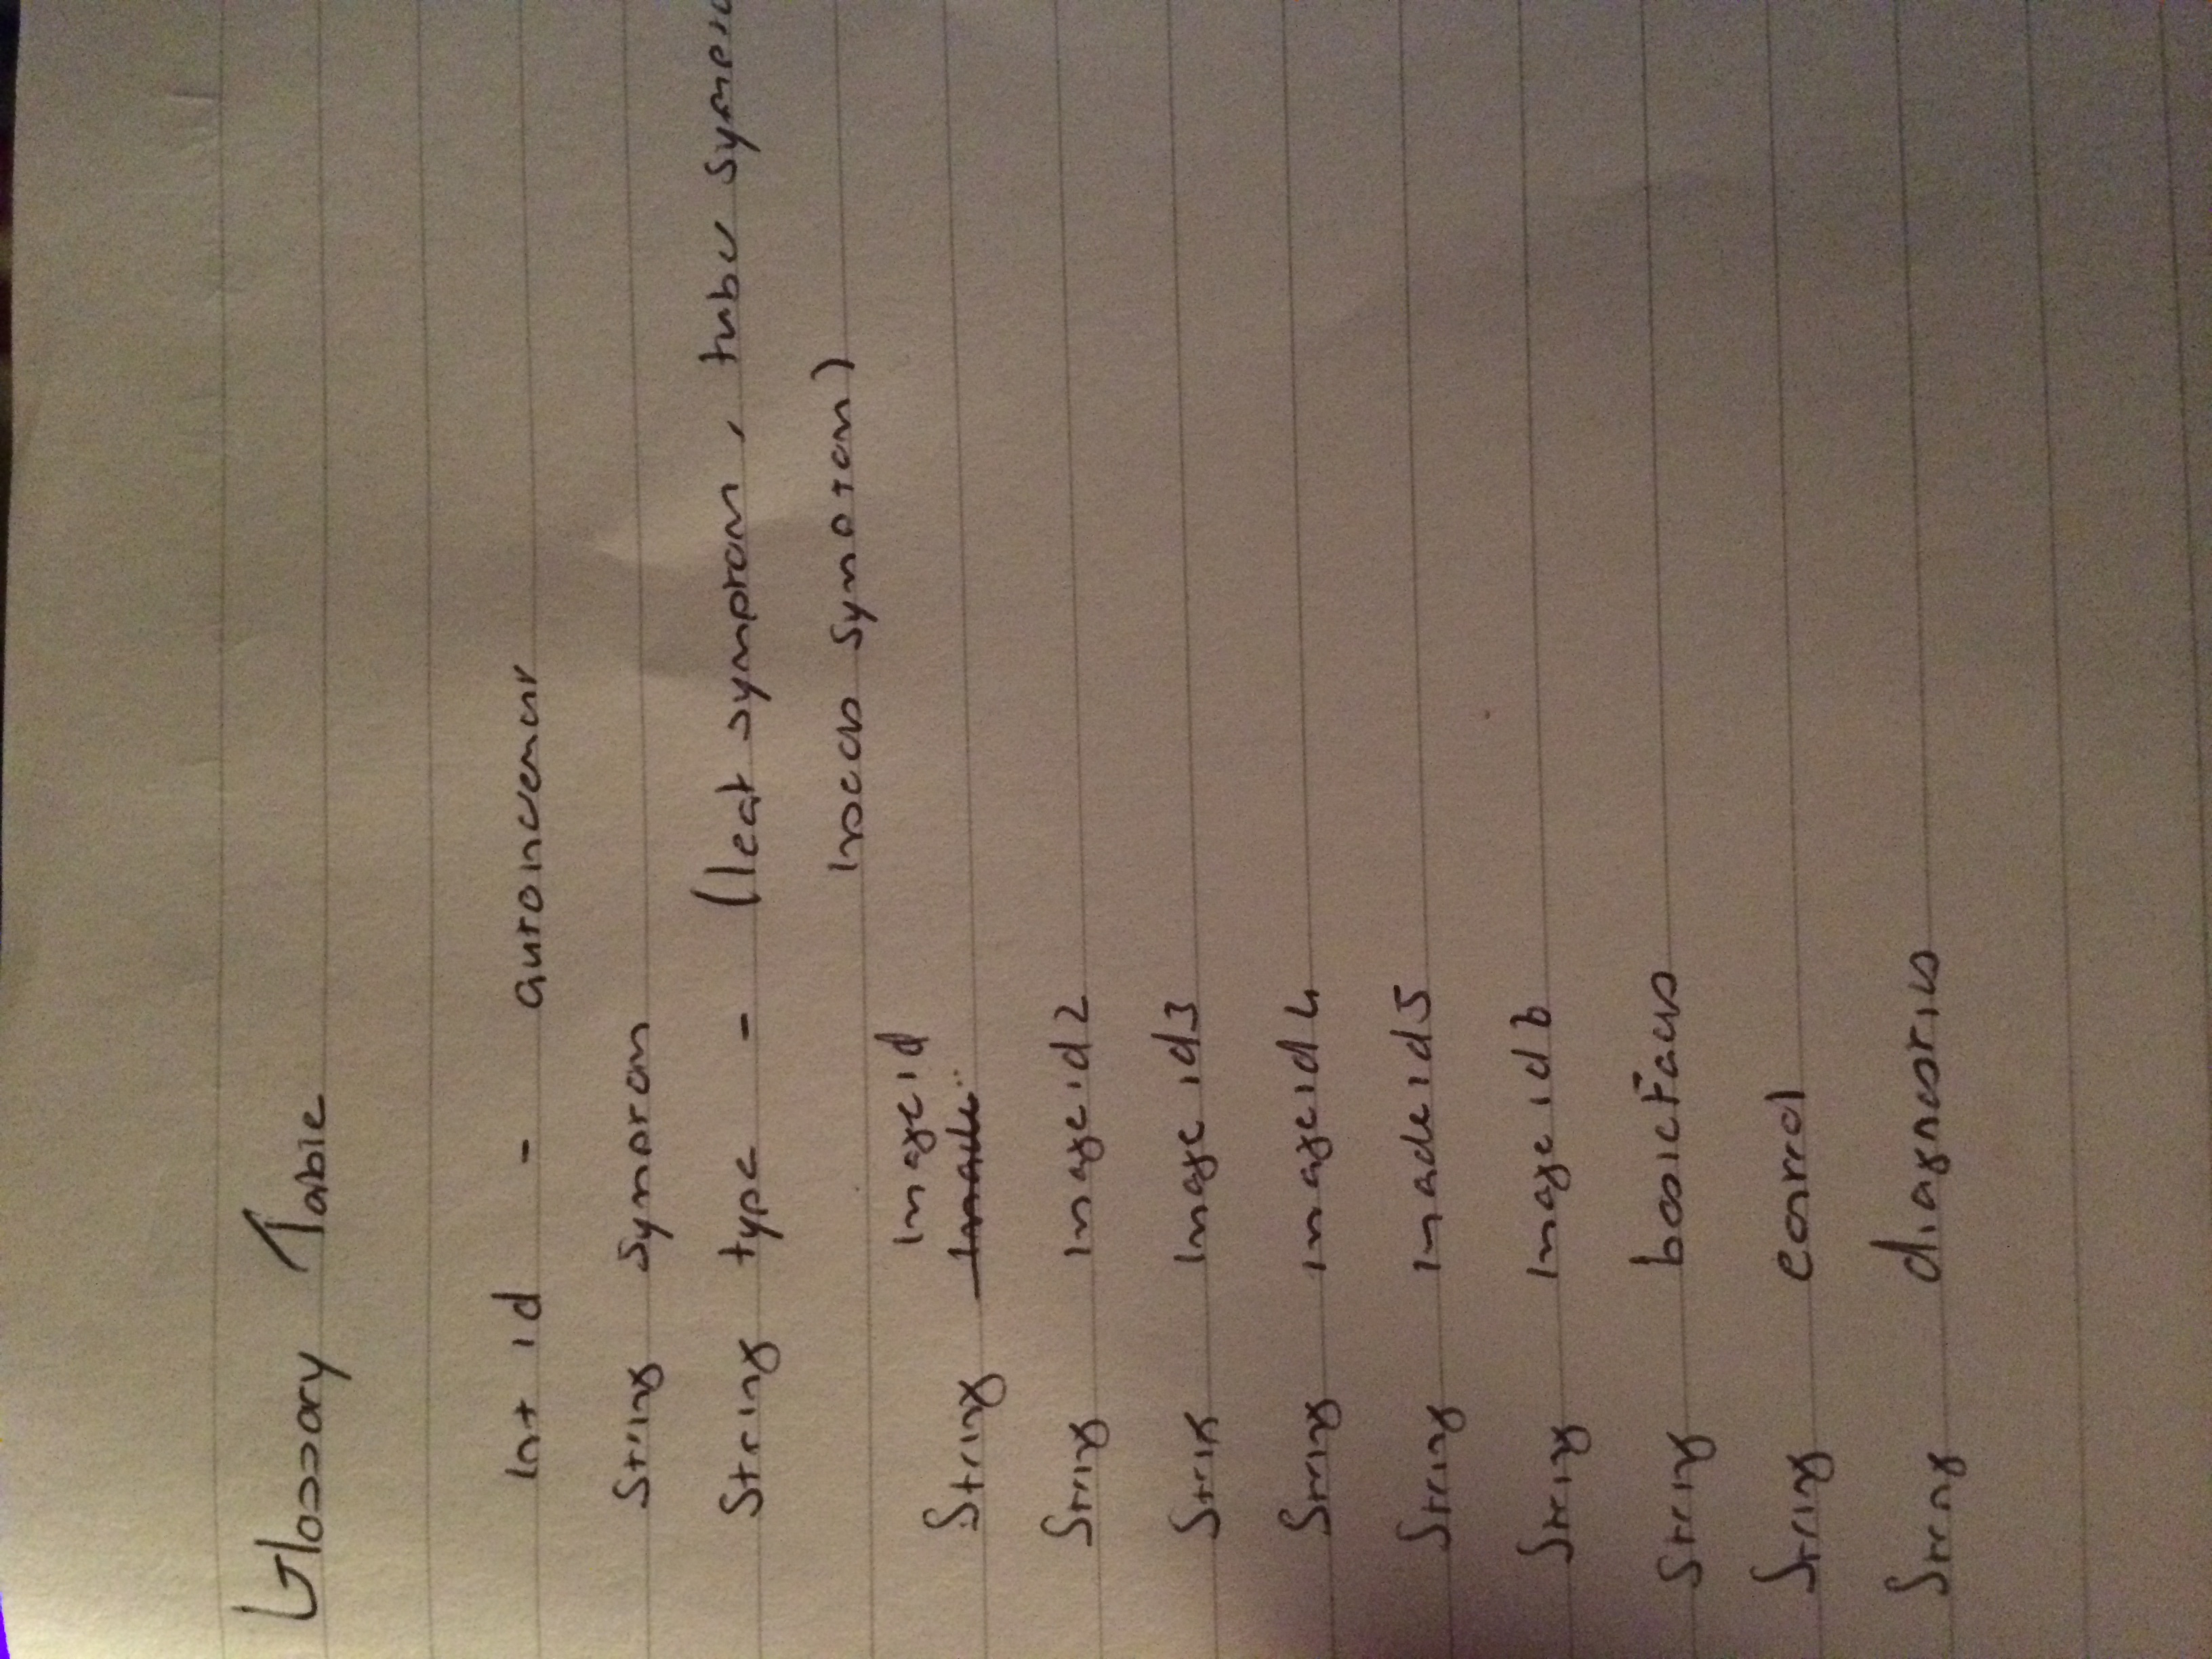 Glossary Table
Int id - autoincrement
String symptom
String type - (leaf symptom, tuber sympto
insects symptom)
Imageid
String Image
String Imageid2
String Image id3
String imageid4
String Imageid5
String Imageid6
String basicFacts
String control
String diagnostics